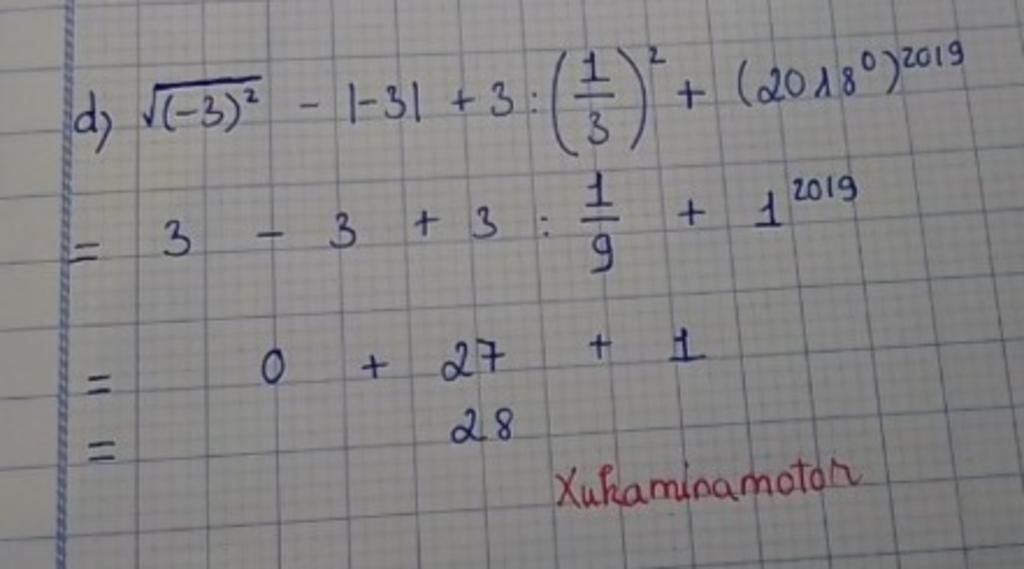 d) √(-3)² - |-3| + 3 : (1/3)² + (2018⁰)²⁰¹⁹
= 3 - 3 + 3 : 1/9 + 1²⁰¹⁹
= 0 + 27 + 1
= 28
Xukaminamotoh